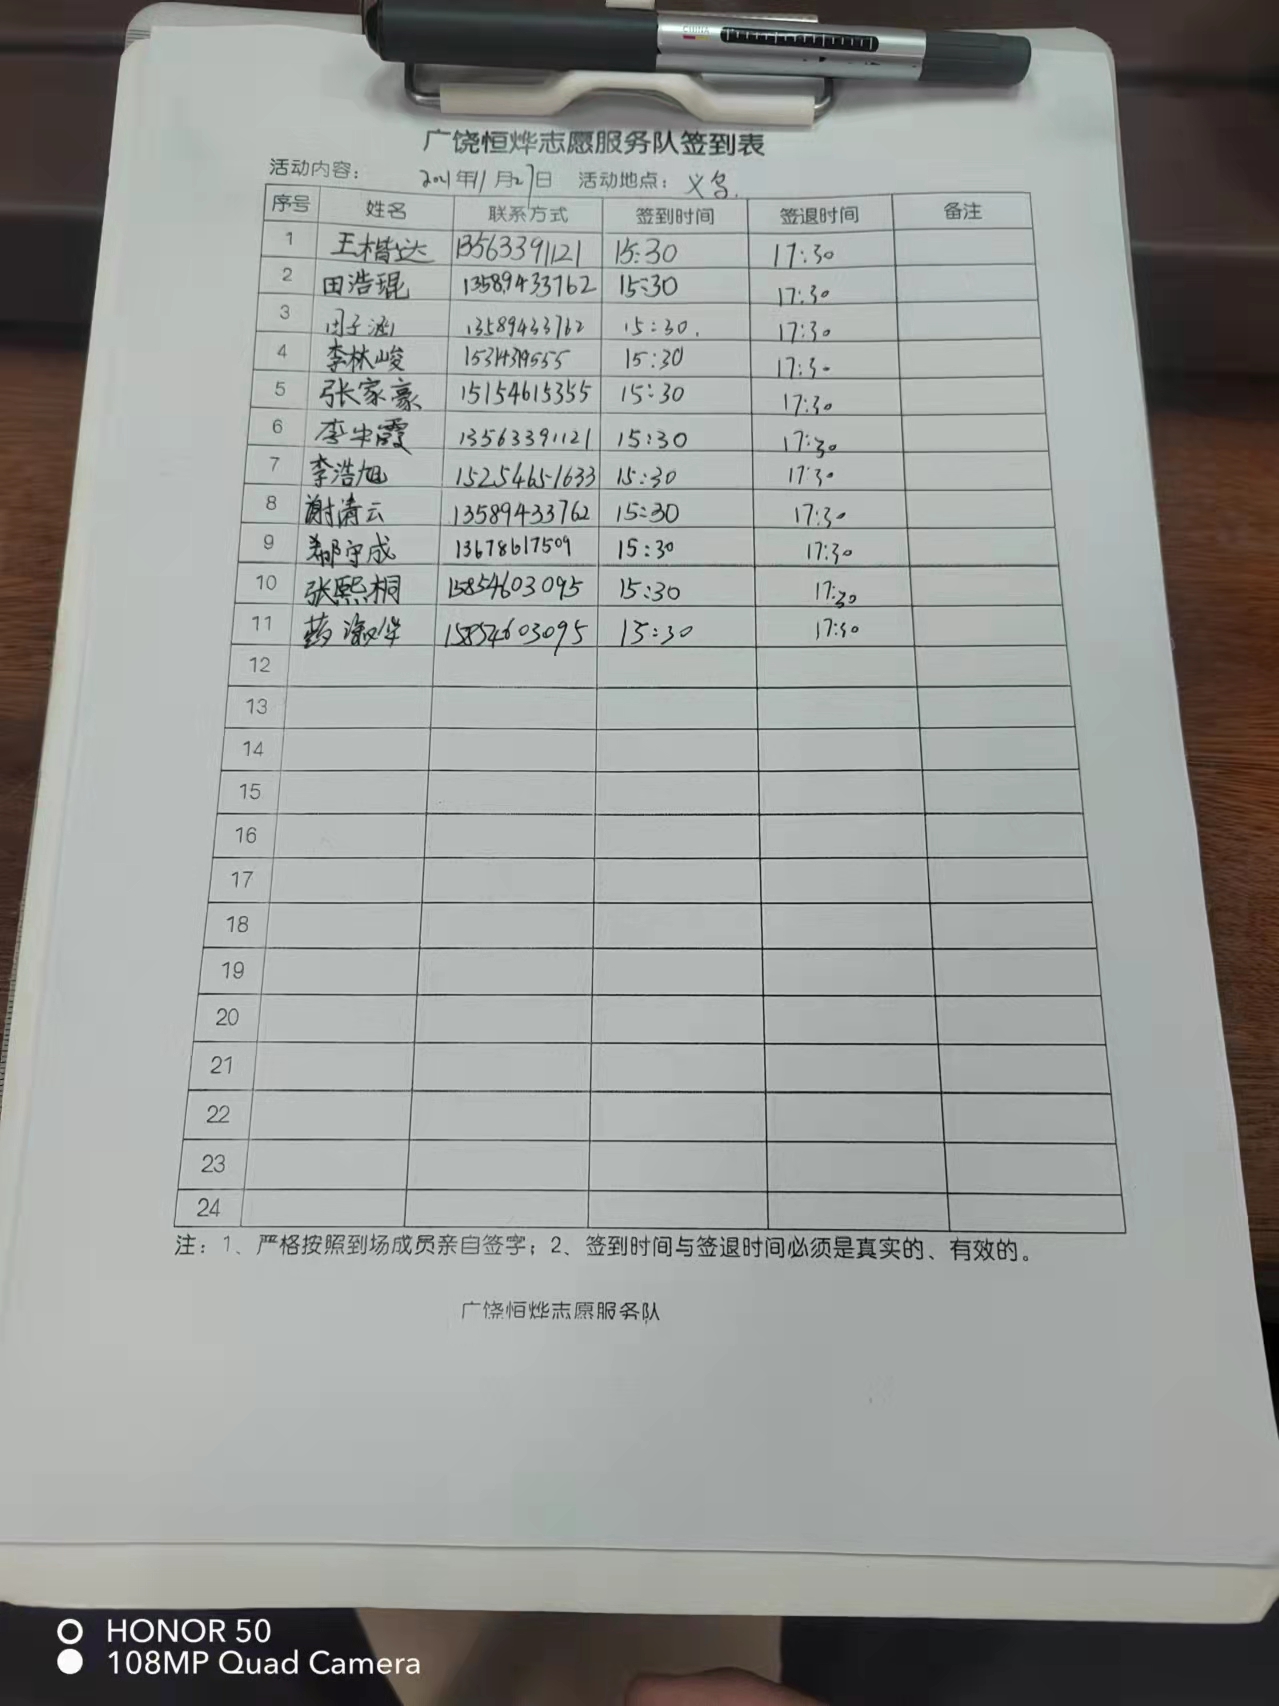 CHINA
广饶恒烨志愿服务队签到表
活动内容：
2021年11月27日 活动地点：义乌.
序号 姓名 联系方式 签到时间 签退时间 备注
1 王楷达 13563391121 15:30 17:30
2 田浩琨 13589433762 15:30 17:30
3 田子涵 13589433762 15:30. 17:30
4 李林峻 15:30 17:30
5 张家豪 15154615355 15:30 17:30
6 李 霞 13563391121 15:30 17:30
7 李浩旭 15254651633 15:30 17:30
8 谢清云 13589433762 15:30 17:30
9 守成 13678617509 15:30 17:30
10 张熙桐 15854603095 15:30 17:30
11 15854603095 15:30 17:30
12
13
14
15
16
17
18
19
20
21
22
23
24
注：1、严格按照到场成员亲自签字；2、签到时间与签退时间必须是真实的、有效的。
广饶恒烨志愿服务队
HONOR 50
108MP Quad Camera